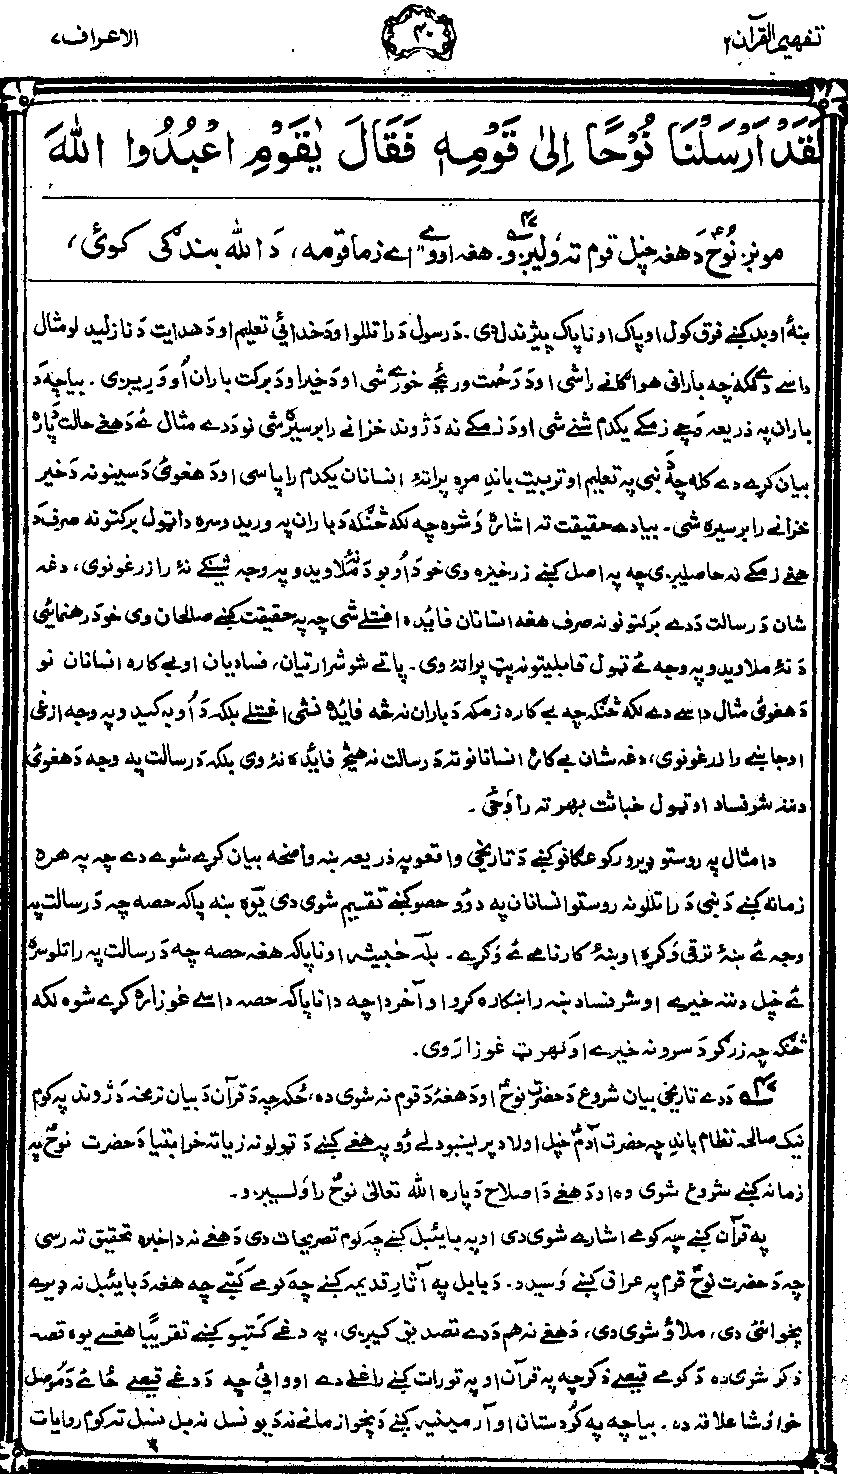 تفهیم القرآن ۲
۴۰
الاعراف ۷
لَقَدْ اَرْسَلْنَا نُوْحًا اِلٰى قَوْمِهٖ فَقَالَ يٰقَوْمِ اعْبُدُوا اللّٰهَ
مونږ نُوحؑ دَ هغه خپل قوم ته ولیږو. هغه اووے "اے زما قومه، دَ اللّٰه بندګی کوئ،
ښهٔ او بد کښے فرق کول او پاک او ناپاک پیژندل وی. دَ رسول دَ راتللو او دَ خدائی تعلیم او دَ هدایت دَ نازلیدلو مثال
داسے دے لکه چه بارانی هواګانے راشی او دَ رحمت وریځے خورے شی او دَ خیر او دَ برکت باران اُووریږی. بیا چه دَ
باران په ذریعه مړے زمکے یکدم شنے شی او دَ زمکے نه دَ ژوند خزانے رابرسیره شی نو دَ دے مثال ئے دَ هغے حالت دپاره
بیان کړے دے کله چه دَ نبی په تعلیم او تربیت باندے مړه پراتهٔ انسانان یکدم راپاسی او دَ هغوئ دَ سینو نه دَ خیر
خزانے رابرسیره شی. بیا دے حقیقت ته اشاره وَشوه چه لکه څنګه دَ باران په ورېدو سره دا ټول برکتونه صرف دَ
هغے زمکے نه حاصلیږی چه په اصل کښے زرخیزه وی خو دَ اُوبو دَ نهٔ ملاویدو په وجه تیښکے نهٔ رازرغونوی، دغه
شان دَ رسالت دَ دے برکتونو نه صرف هغه انسانان فائده اخستلے شی چه په حقیقت کښے صالحان وی خو دَ رهنمائی
دَ نهٔ ملاویدو په وجه ئے ټول قابلیتونه پټ پراتهٔ وی. پاتے شو شرارتیان، فسادیان او بے کاره انسانان نو
دَ هغوئ مثال داسے دے لکه څنګه چه بے کاره زمکه دَ باران نه څه فائده نشی اغستلے بلکه دَ اُوبه کیدو په وجه ازغی
او جاړے رازرغونوی، دغه شان بے کاره انسانانو ته دَ رسالت نه هیڅ فائده نهٔ وی بلکه دَ رسالت په وجه دَ هغوئ
دننه شر فساد او ټول خباثت بهر ته راوَځی.
دا مثال په روستو ډیرو رکوعګانو کښے دَ تاریخی واقعو په ذریعه ښه واضحه بیان کړے شوے دے چه په هره
زمانه کښے دَ نبی دَ راتللو نه روستو انسانان په دوؤ حصو کښے تقسیم شوی دی یوه ښه پاکه حصه چه دَ رسالت په
وجه ئے ښهٔ ترقی وَکړه او ښهٔ کارنامے ئے وَکړے. بله خبیثه او ناپاکه هغه حصه چه دَ رسالت په راتلو سره
ئے خپل دننه خیرے او شر فساد ښه راښکاره کړو او آخر دا چه دا ناپاکه حصه داسے غوزار کړے شوه لکه
څنګه چه زرګر دَ سرو نه خیرے اَوبهر ته غوزاروی.
۴۷ دَ دے تاریخی بیان شروع دَ حضرت نوحؑ او دَ هغهٔ دَ قوم نه شوی ده، ځکه چه دَ قرآن دَ بیان ترمخه دَ ژوند په کوم
نیک صالحه نظام باندے چه حضرت آدمؑ خپل اولاد پریښودلے وُو په هغے کښے دَ ټولو نه زیاته خرابتیا دَ حضرت نوحؑ په
زمانه کښے شروع شوی وه او دَ هغے دَ اصلاح دَ پاره اللّٰه تعالیٰ نوحؑ راولیږو.
په قرآن کښے چه کومے اشارے شوی دی او په بائیبل کښے چه کوم تصریحات دی دَ هغے نه دا خبره تحقیق ته رسی
چه دَ حضرت نوحؑ قوم په عراق کښے وَسیدو. دَ بابل په آثار قدیمه کښے چه کومے کتبے چه هغه دَ بائیبل نه ډیرے
پخوانئی دی، ملاؤ شوی دی، دَ هغے نه هم دَ دے تصدیق کیږی، په دغے کتبو کښے تقریبًا هغسے یوه قصه
ذکر شوی ده دَ کومے قیصے ذکر چه په قرآن او په تورات کښے راغلے دے او وائی چه دَ دغے قیصے ځائے دَ موصل
خوا وُشا علاقه ده. بیا چه په کُردستان او آرمینیه کښے دَ پخوا زمانے نه دَ یو نسل نه بل نسل ته کوم روایات